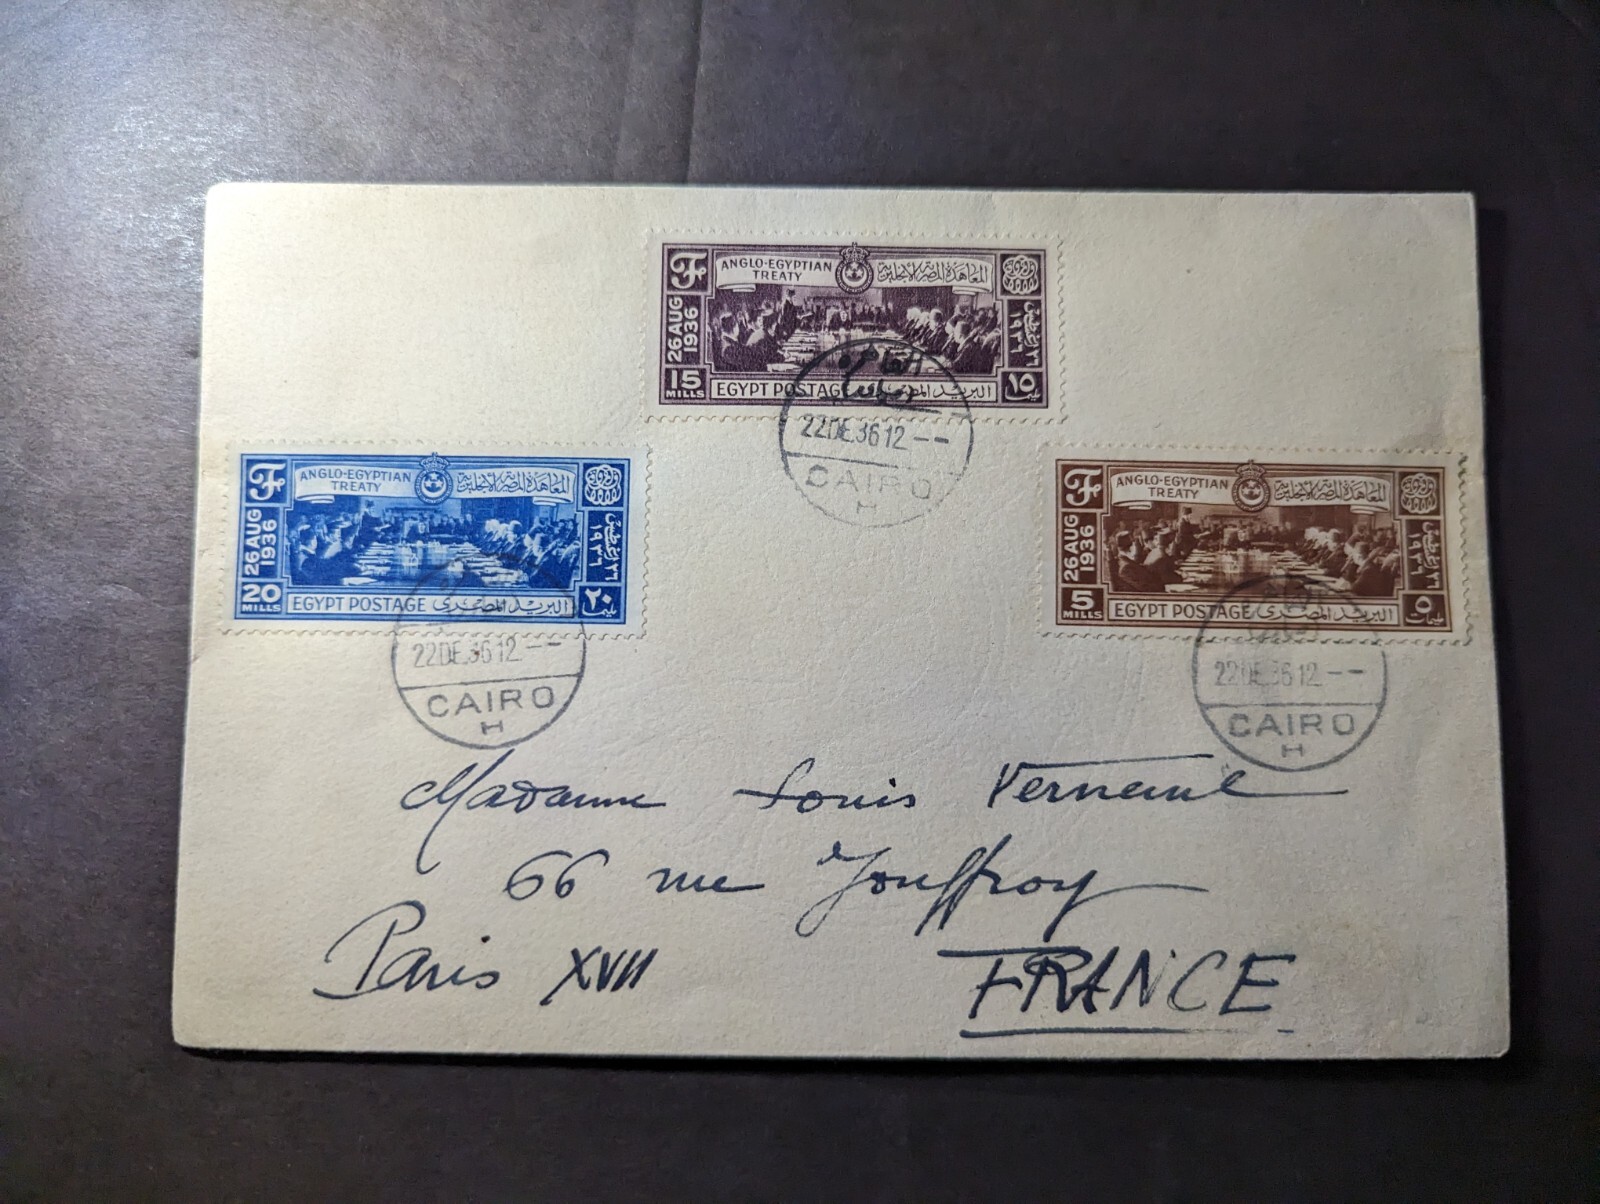 ANGLO-EGYPTIAN TREATY المعاهدة المصرية الإنجليزية
26 AUG 1936
٢٦ أغسطس ١٩٣٦
15 MILLS EGYPT POSTAGE البريد المصرى ١٥ مليمات
القاهرة
22 DE 36 12 --
CAIRO
H
ANGLO-EGYPTIAN TREATY المعاهدة المصرية الإنجليزية
26 AUG 1936
٢٦ أغسطس ١٩٣٦
20 MILLS EGYPT POSTAGE البريد المصرى ٢٠
22 DE 36 12 --
CAIRO
H
ANGLO-EGYPTIAN TREATY المعاهدة المصرية الإنجليزية
26 AUG 1936
٢٦ أغسطس ١٩٣٦
5 MILLS EGYPT POSTAGE البريد المصرى ٥ مليمات
22 DE 36 12 --
CAIRO
H
Madame Louis Verneuil
66 rue Jouffroy
Paris XVII FRANCE